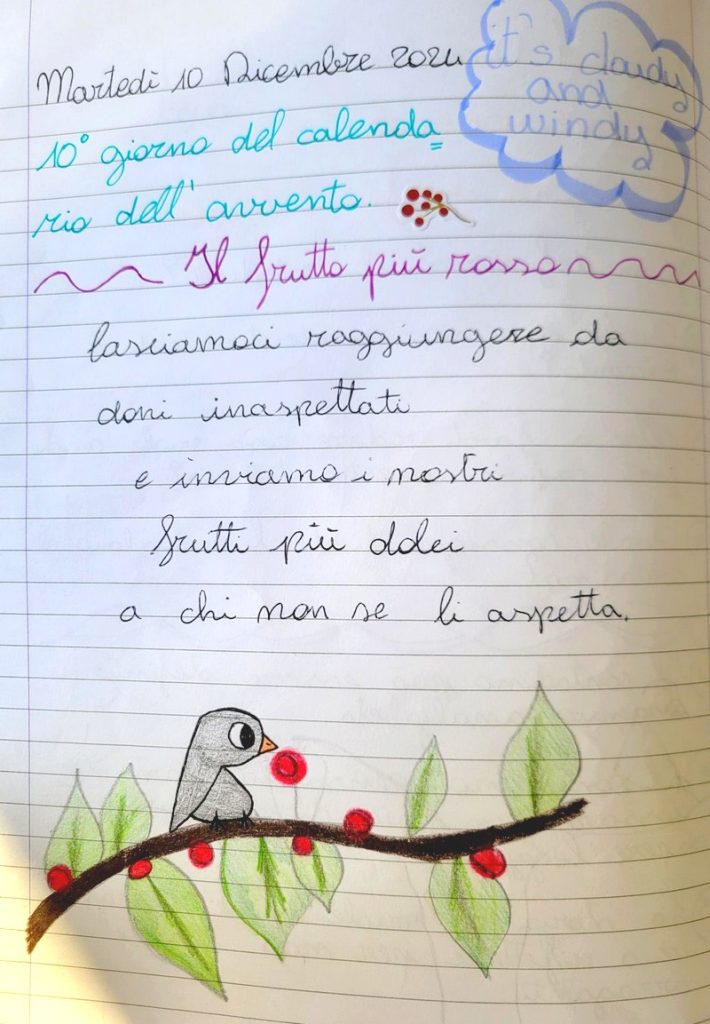 Martedì 10 Dicembre 2024
it's cloudy
and
windy
10° giorno del calenda=
rio dell'avvento.
Il frutto più rosso
lasciamoci raggiungere da
doni inaspettati
e inviamo i nostri
frutti più dolci
a chi non se li aspetta.